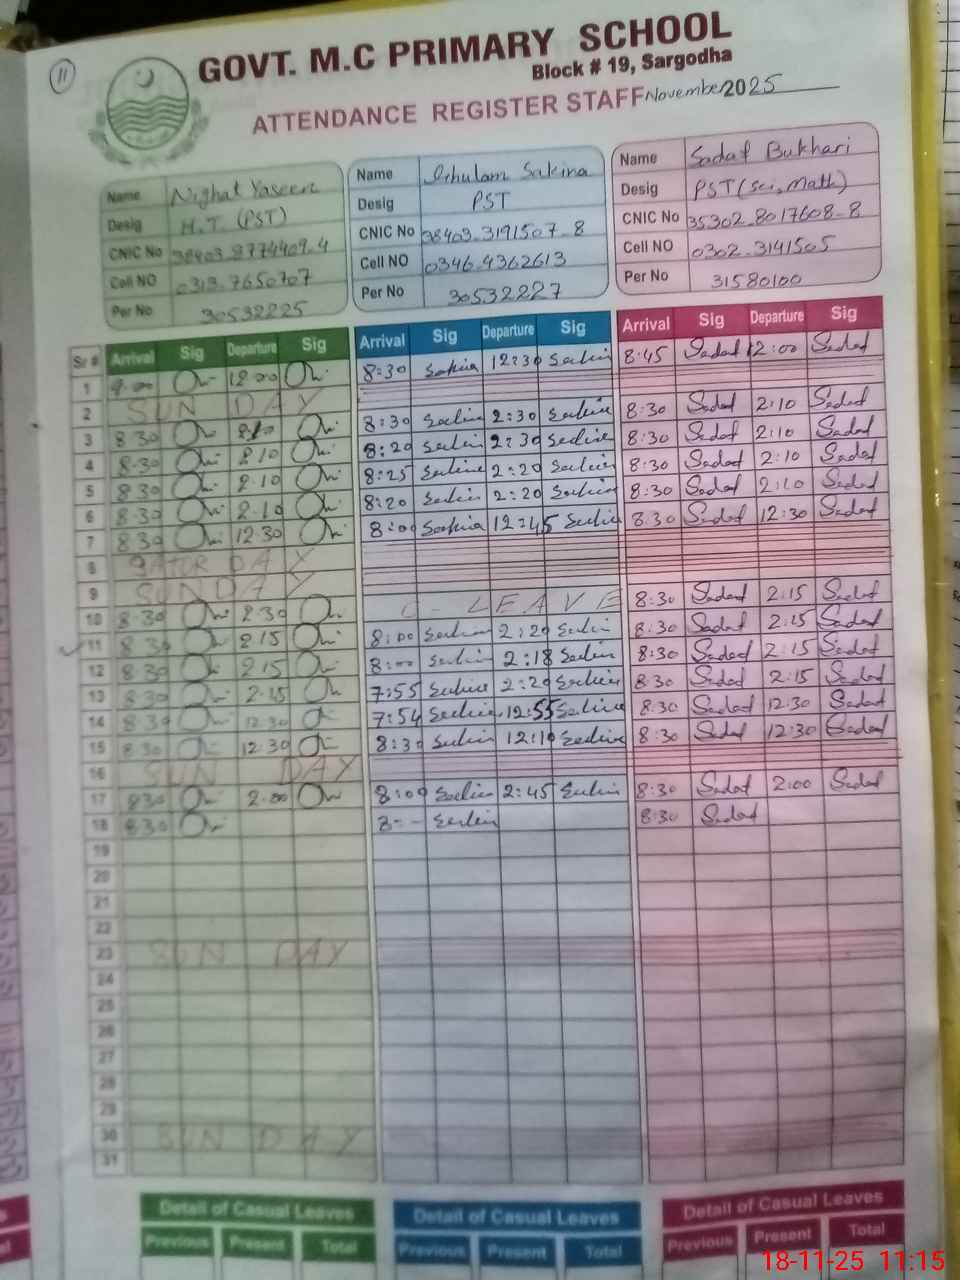 11
GOVT. M.C PRIMARY SCHOOL
Block # 19, Sargodha
ATTENDANCE REGISTER STAFF November 2025
Name Nighat Yaseen
Desig H.T. (PST)
CNIC No 38403-8774409-4
Cell NO 0313-7650707
Per No 30532225
Name Ghulam Sakina
Desig PST
CNIC No 38403-3191507-8
Cell NO 0346-4362613
Per No 30532227
Name Sadaf Bukhari
Desig PST (Sci, Math)
CNIC No 35302-8017608-8
Cell NO 0302-3141505
Per No 31580100
Sr # Arrival Sig Departure Sig Arrival Sig Departure Sig Arrival Sig Departure Sig
1 9-00 12 00 8:30 Sakina 12:30 Sakina 8:45 Sadaf 12:00 Sadaf
2 SUN DAY
3 8 30 8:30 Sakina 2:30 Sakina 8:30 Sadaf 2:10 Sadaf
4 8-30 2 10 8:20 Sakina 2:30 Sakina 8:30 Sadaf 2:10 Sadaf
5 8 30 2-10 8:25 Sakina 2:20 Sakina 8:30 Sadaf 2:10 Sadaf
6 8-30 2-10 8:20 Sakina 2:20 Sakina 8:30 Sadaf 2:10 Sadaf
7 8 30 12-30 8:00 Sakina 12:45 Sakina 8:30 Sadaf 12:30 Sadaf
8 SATOR DAY
9 SUNDAY
10 8-30 2-30 C-LEAVE 8:30 Sadaf 2:15 Sadaf
11 8 30 2 15 8:00 Sakina 2:20 Sakina 8:30 Sadaf 2:15 Sadaf
12 8 30 2 15 8:00 Sakina 2:18 Sakina 8:30 Sadaf 2:15 Sadaf
13 8 30 2-15 7:55 Sakina 2:20 Sakina 8:30 Sadaf 2:15 Sadaf
14 8 30 12-30 7:54 Sakina 12:55 Sakina 8:30 Sadaf 12:30 Sadaf
15 8 30 12-30 8:30 Sakina 12:10 Sakina 8:30 Sadaf 12:30 Sadaf
16 SUN DAY
17 8 30 2-00 8:00 Sakina 2:45 Sakina 8:30 Sadaf 2:00 Sadaf
18 8 30 8-- Sakina 8:30 Sadaf
19
20
21
22
23 SUN DAY
24
25
26
27
28
29
30 SUN DAY
31
Detail of Casual Leaves Detail of Casual Leaves Detail of Casual Leaves
Previous Present Total Previous Present Total Previous Present Total
18-11-25 11:15